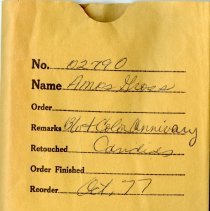 No. 02790
Name Amos Gross
Order
Remarks B/W + Color Annivary
Retouched Candids
Order Finished
Reorder Oct, 77